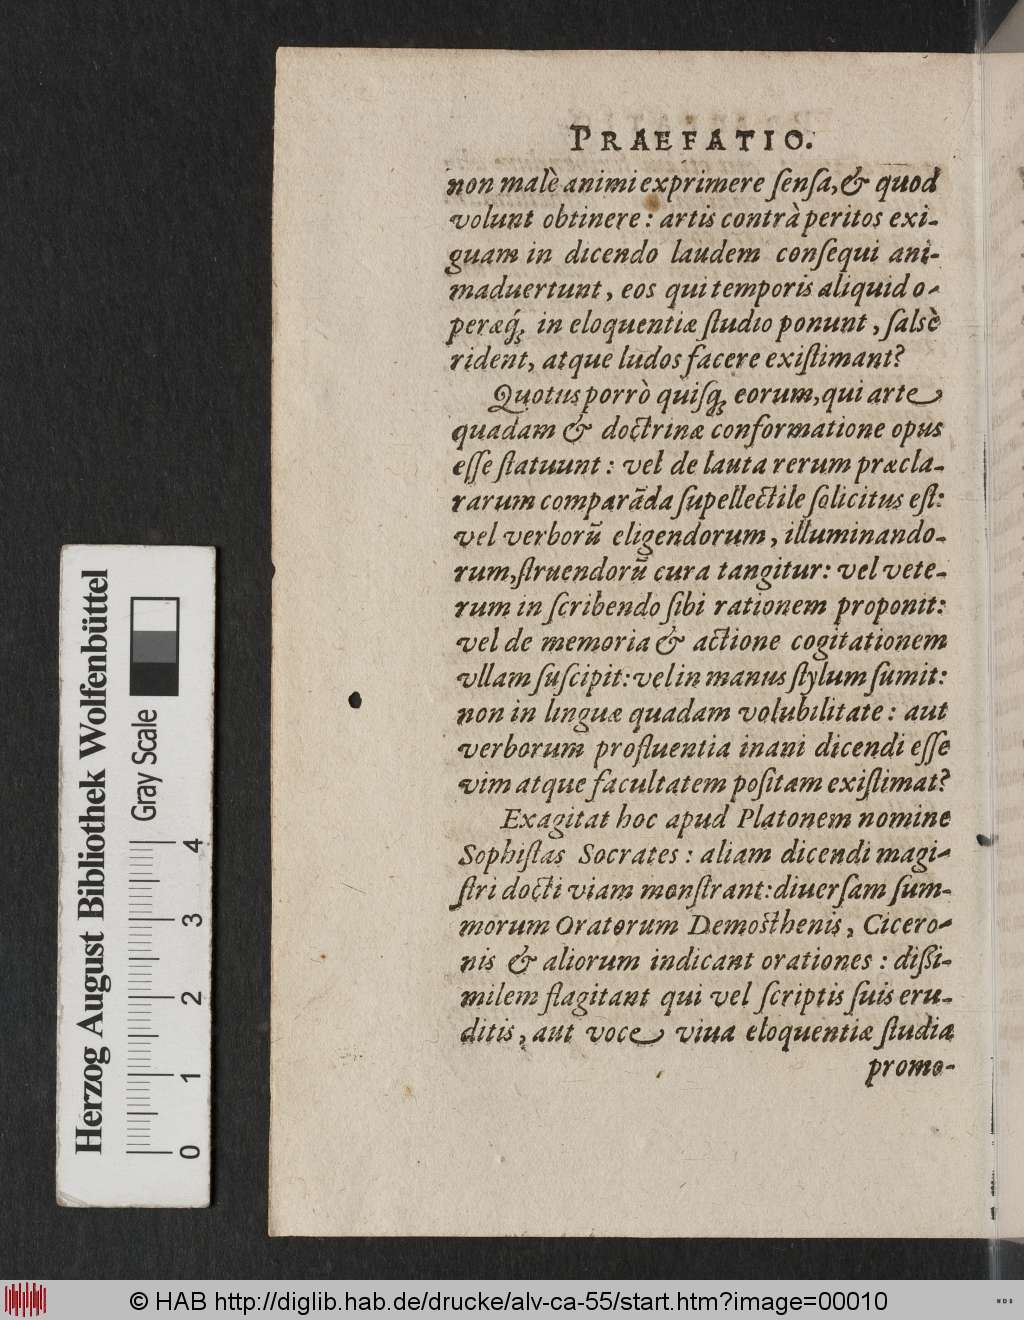 PRAEFATIO.
non malè animi exprimere ſenſa, & quod
volunt obtinere: artis contrà peritos exi-
guam in dicendo laudem conſequi ani-
maduertunt, eos qui temporis aliquid o-
peræq́ꝫ in eloquentiæ ſtudio ponunt, falsè
rident, atque ludos facere exiſtimant?
Quotus porrò quiſqꝫ eorum, qui arte
quadam & doctrinæ conformatione opus
eſſe ſtatuunt: vel de lauta rerum præcla-
rarum comparāda ſupellectile ſolicitus eſt:
vel verborū eligendorum, illuminando-
rum, ſtruendorū cura tangitur: vel vete-
rum in ſcribendo ſibi rationem proponit:
vel de memoria & actione cogitationem
vllam ſuſcipit: vel in manus ſtylum ſumit:
non in linguæ quadam volubilitate: aut
verborum profluentia inani dicendi eſſe
vim atque facultatem poſitam exiſtimat?
Exagitat hoc apud Platonem nomine
Sophiſtas Socrates: aliam dicendi magi-
ſtri docti viam monſtrant: diuerſam ſum-
morum Oratorum Demoſthenis, Cicero-
nis & aliorum indicant orationes: diſſi-
milem flagitant qui vel ſcriptis ſuis eru-
ditis, aut voce viua eloquentiæ ſtudia
promo-
Herzog August Bibliothek Wolfenbüttel
Gray Scale
0 1 2 3 4
© HAB http://diglib.hab.de/drucke/alv-ca-55/start.htm?image=00010